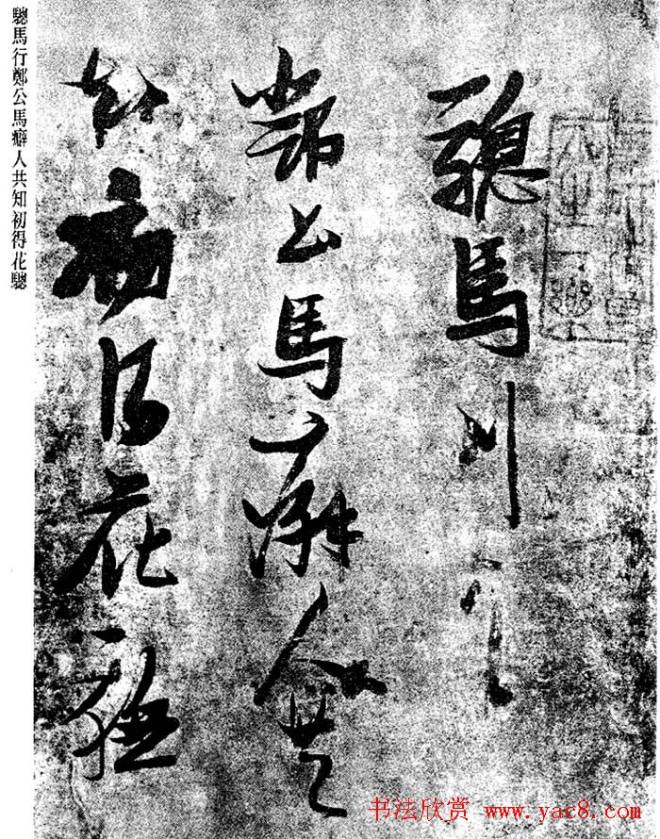 驄馬行
鄭公馬癖人共
知初得花驄
驄馬行鄭公馬癖人共知初得花驄
书法欣赏 www.yac8.com